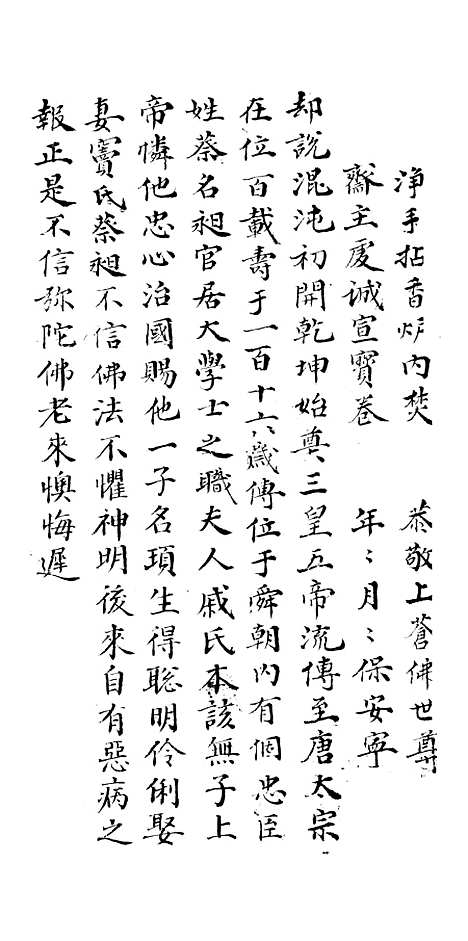 净手拈香炉内焚　恭敬上蒼佛世尊
齋主虔诚宣寶卷　年〻月〻保安寧
却説混沌初開乾坤始奠三皇五帝流傳至唐太宗
在位百載壽于一百十六歲傳位于舜朝内有個忠臣
姓蔡名昶官居大學士之職夫人戚氏本該無子上
帝憐他忠心治國賜他一子名項生得聪明伶俐娶
妻竇氏蔡昶不信佛法不懼神明後來自有惡病之
報正是不信弥陀佛老來懊悔遲